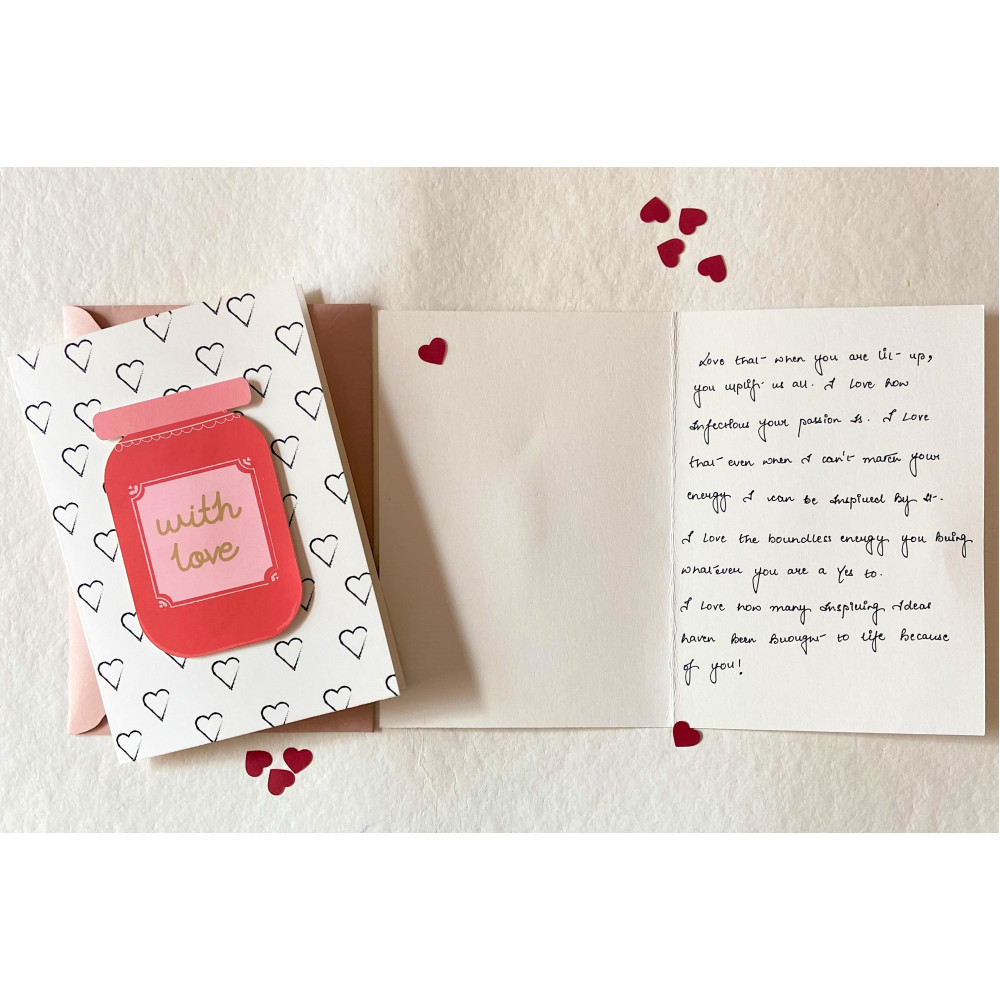 with
love
Love that when you are lit up,
you uplift us all. I love how
infectious your passion is. I love
that even when I can't match your
energy I can be inspired by it.
I love the boundless energy you bring
whatever you are a yes to.
I love how many inspiring ideas
haven been brought to life because
of you!